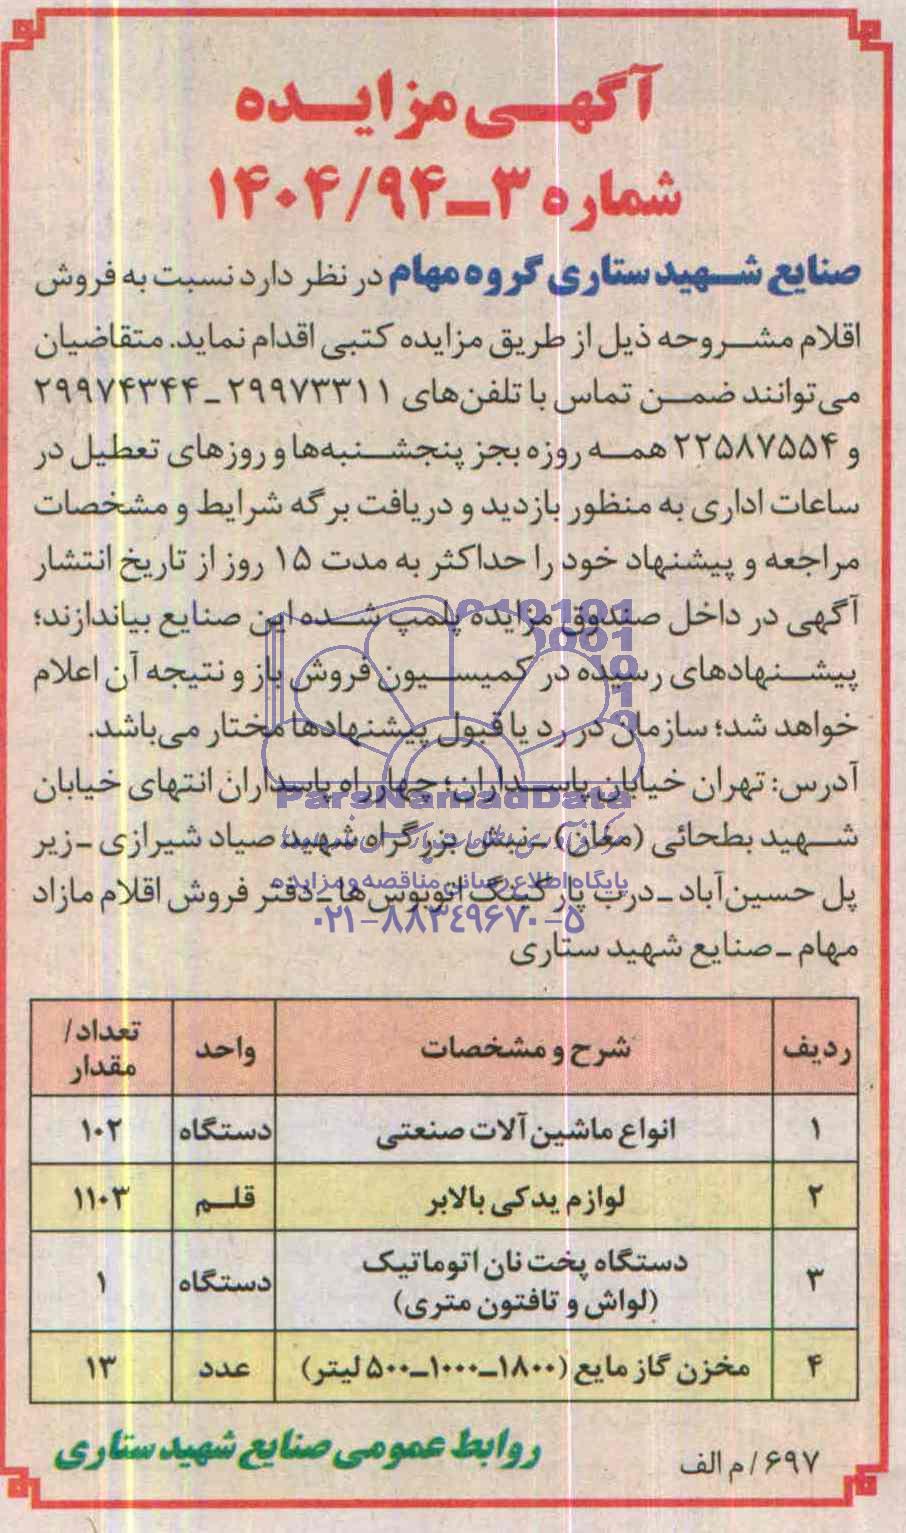 آگهی مزایده
شماره ۳ـ۱۴۰۴/۹۴
صنایع شهید ستاری گروه مهام در نظر دارد نسبت به فروش
اقلام مشروحه ذیل از طریق مزایده کتبی اقدام نماید. متقاضیان
می‌توانند ضمن تماس با تلفن‌های ۲۹۹۷۳۳۱۱ ـ ۲۹۹۷۴۳۴۴
و ۲۲۵۸۷۵۵۴ همه روزه بجز پنجشنبه‌ها و روزهای تعطیل در
ساعات اداری به منظور بازدید و دریافت برگه شرایط و مشخصات
مراجعه و پیشنهاد خود را حداکثر به مدت ۱۵ روز از تاریخ انتشار
آگهی در داخل صندوق مزایده پلمپ شده این صنایع بیاندازند؛
پیشنهادهای رسیده در کمیسیون فروش باز و نتیجه آن اعلام
خواهد شد؛ سازمان در رد یا قبول پیشنهادها مختار می‌باشد.
آدرس: تهران خیابان پاسداران؛ چهارراه پاسداران انتهای خیابان
شهید بطحائی (مغان) ـ نبش بزرگراه شهید صیاد شیرازی ـ زیر
پل حسین‌آباد ـ درب پارکینگ اتوبوس‌ها ـ دفتر فروش اقلام مازاد
مهام ـ صنایع شهید ستاری
ParsNamadData
پایگاه اطلاع رسانی مناقصه و مزایده
۰۲۱-۸۸۳۴۹۶۷۰-۵
ردیف شرح و مشخصات واحد تعداد/مقدار
۱ انواع ماشین آلات صنعتی دستگاه ۱۰۲
۲ لوازم یدکی بالابر قلم ۱۱۰۳
۳ دستگاه پخت نان اتوماتیک (لواش و تافتون متری) دستگاه ۱
۴ مخزن گاز مایع (۱۸۰۰ـ۱۰۰۰ـ۵۰۰ لیتر) عدد ۱۳
روابط عمومی صنایع شهید ستاری
۶۹۷/م الف